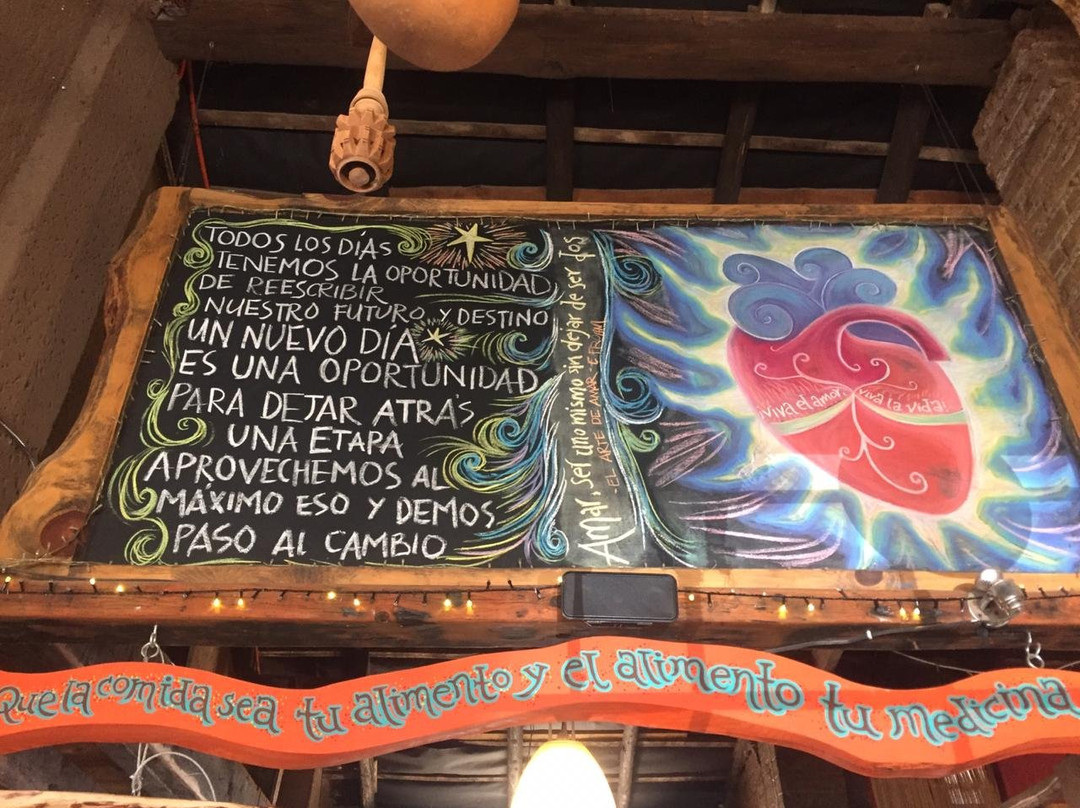 TODOS LOS DÍAS
TENEMOS LA OPORTUNIDAD
DE REESCRIBIR
NUESTRO FUTURO Y DESTINO
UN NUEVO DÍA
ES UNA OPORTUNIDAD
PARA DEJAR ATRÁS
UNA ETAPA
APROVECHEMOS AL
MÁXIMO ESO Y DEMOS
PASO AL CAMBIO
Amar, ser uno mismo sin dejar de ser dos
- EL ARTE DE AMAR - E. FROMM
Viva el amor! Viva la vida!
Que la comida sea tu alimento y el alimento tu medicina